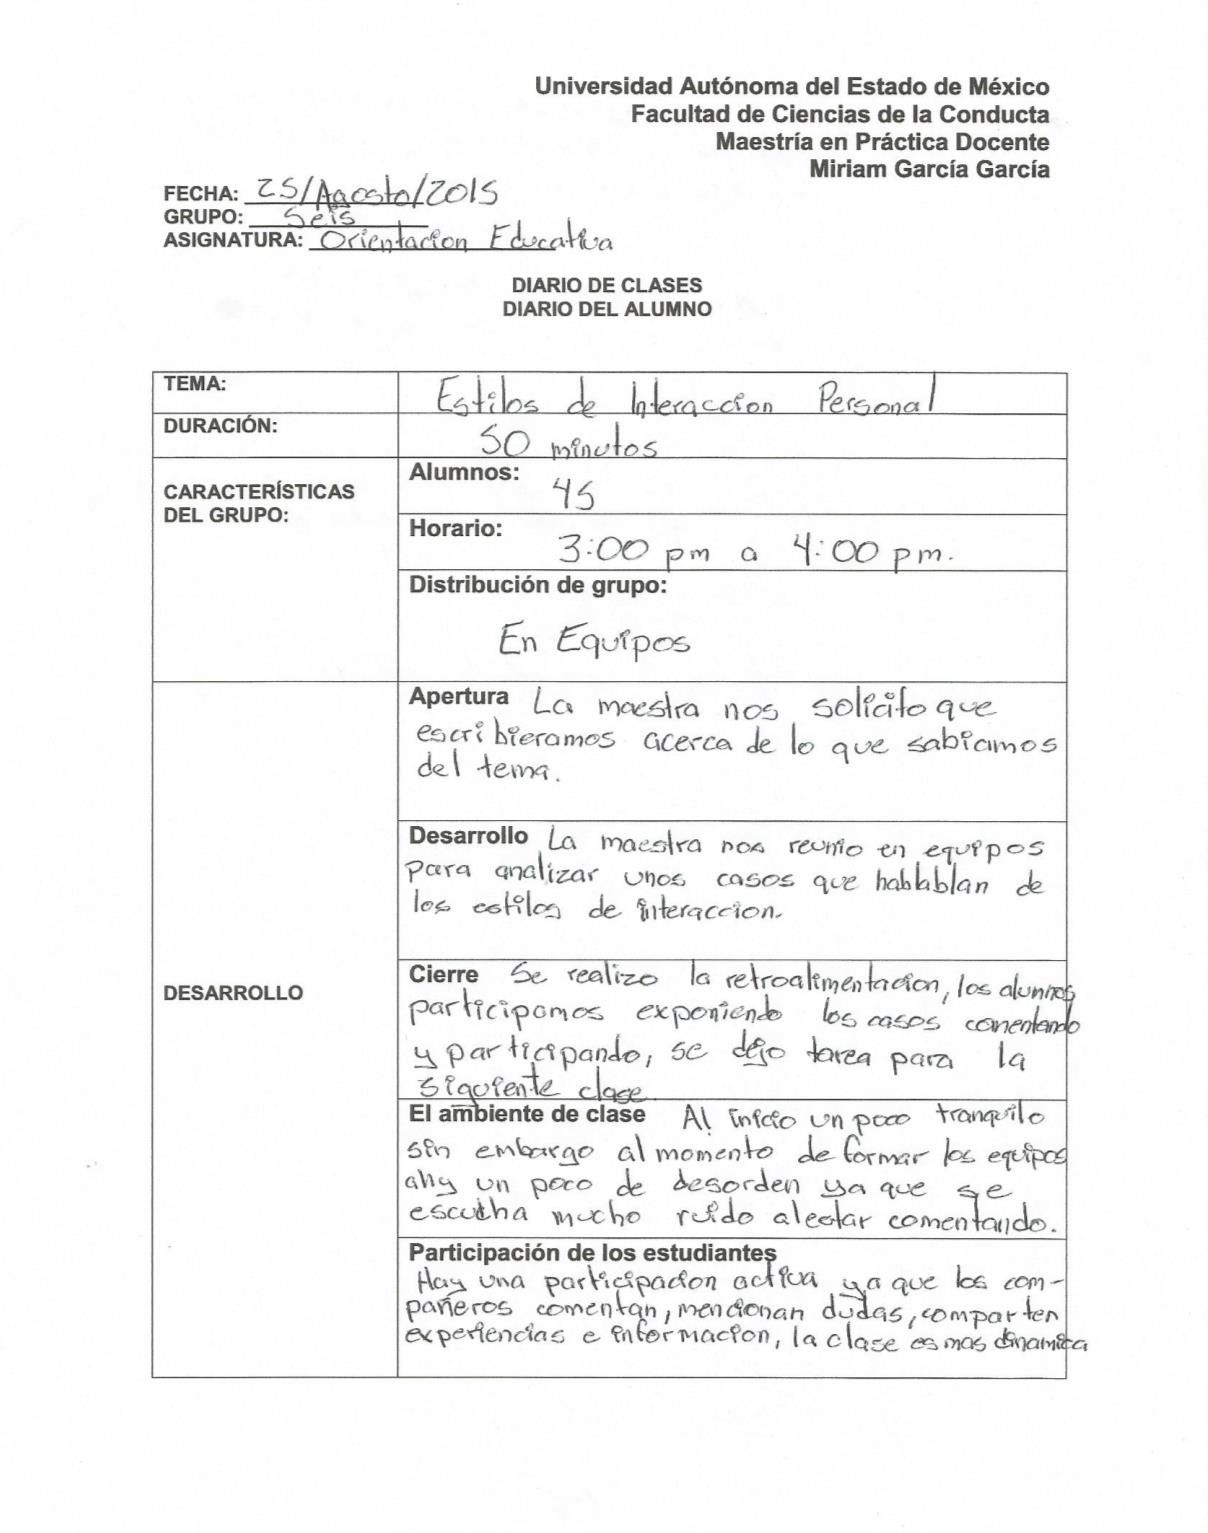 Universidad Autónoma del Estado de México
Facultad de Ciencias de la Conducta
Maestría en Práctica Docente
Miriam García García
FECHA: 25/Agosto/2015
GRUPO: Seis
ASIGNATURA: Orientacion Educativa
DIARIO DE CLASES
DIARIO DEL ALUMNO
TEMA: Estilos de Interaccion Personal
DURACIÓN: 50 minutos
CARACTERÍSTICAS
DEL GRUPO:
Alumnos: 45
Horario: 3:00 pm a 4:00 pm.
Distribución de grupo:
En Equipos
DESARROLLO
Apertura La maestra nos solicito que
escribieramos acerca de lo que sabiamos
del tema.
Desarrollo La maestra nos reunio en equipos
para analizar unos casos que hablablan de
los estilos de interaccion.
Cierre Se realizo la retroalimentacion, los alumnos
participamos exponiendo los casos comentando
y participando, se dejo tarea para la
siguiente clase
El ambiente de clase Al inicio un poco tranquilo
sin embargo al momento de formar los equipos
ahy un poco de desorden ya que se
escucha mucho ruido al estar comentando.
Participación de los estudiantes
Hay una participacion activa ya que los com-
pañeros comentan, mencionan dudas, comparten
experiencias e informacion, la clase es mas dinamica